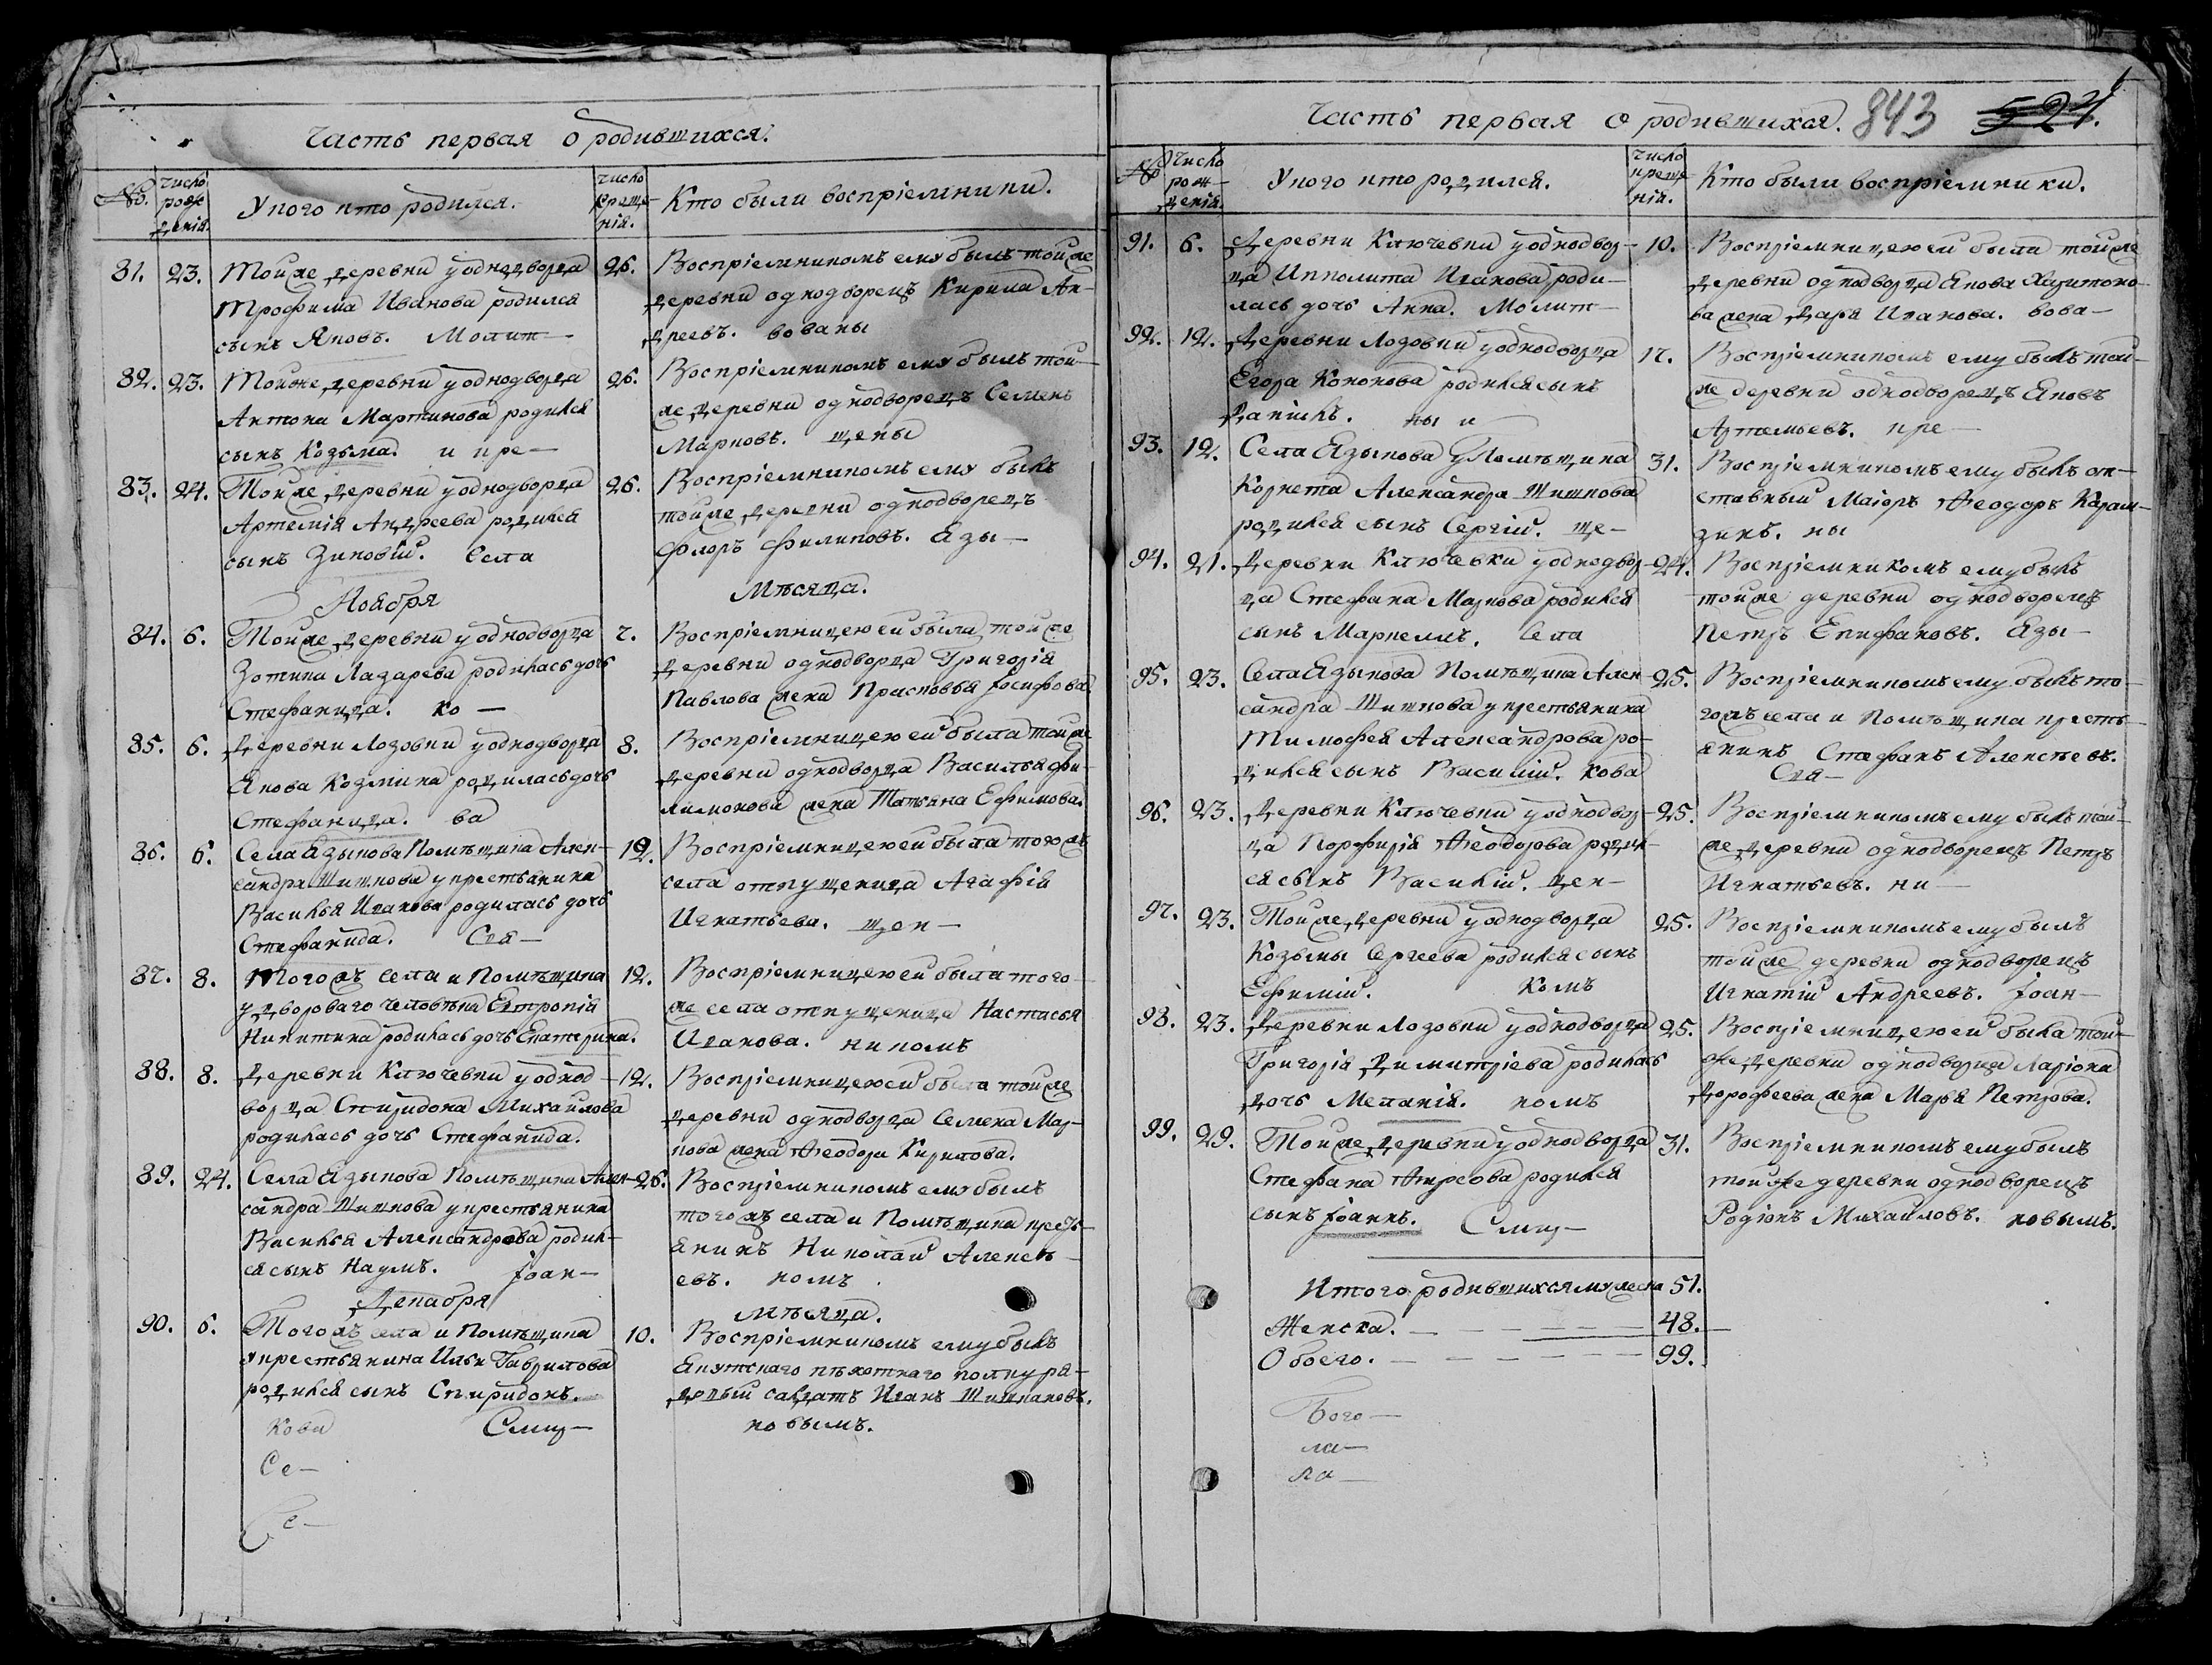 Часть первая о родившихся.
№. Число рожденія. У кого кто родился. Число крещенія. Кто были воспріемники.
81. 23. Тойже деревни у однодворца 26. Воспріемникомъ ему былъ тойже
Трофима Иванова родился деревни однодворецъ Кирила Ан-
сынъ Яковъ. Молит- дреевъ. вованы
82. 23. Тойже деревни у однодворца 26. Воспріемникомъ ему былъ той-
Антона Мартинова родился же деревни однодворецъ Семенъ
сынъ Козьма. и кре- Марковъ. щены
83. 24. Тойже деревни у однодворца 26. Воспріемникомъ ему былъ
Артемія Андреева родился тойже деревни однодворецъ
сынъ Зиновій. Села Флоръ Филиповъ. Язы-
Ноября Мѣсяца.
84. 6. Тойже деревни у однодворца 7. Воспріемницею ей была тойже
Зотика Лазарева родилась дочь деревни однодворца Григорія
Стефанида. ко- Павлова жена Прасковья Іосифова
85. 6. Деревни Лозовки у однодворца 8. Воспріемницею ей была тойже
Якова Козмина родилась дочь деревни однодворца Василья Фи-
Стефанида. ва лимонова жена Татьяна Ефимова.
86. 6. Села Языкова Помѣщика Алек- 12. Воспріемницею ей была тогожъ
сандра Шишкова у крестьянина села отпущеница Агафія
Василья Иванова родилась дочь Игнатьева. щен-
Стефанида. Свя-
87. 8. Тогожъ села и Помѣщика 12. Воспріемницею ей была того-
у двороваго человѣка Евтропія же села отпущеница Настасья
Никитина родилась дочь Екатерина. Иванова. никомъ
88. 8. Деревни Ключевки у однод- 12. Воспріемницею ей была тойже
ворца Спиридона Михайлова деревни однодворца Семена Мар-
родилась дочь Стефанида. кова жена Ѳеодора Кирилова.
89. 24. Села Языкова Помѣщика Алек- 26. Воспріемникомъ ему былъ
сандра Шишкова у крестьянина тогожъ села и Помѣщика кресть-
Василья Александрова родил- янинъ Николай Алексѣ-
ся сынъ Наумъ. Іоан- евъ. номъ
Декабря мѣсяца.
90. 6. Тогожъ села и Помѣщика 10. Воспріемникомъ ему былъ
у крестьянина Ильи Гаврилова Якутскаго пѣхотнаго полку ря-
родился сынъ Спиридонъ. довый салдатъ Иванъ Шишкановъ.
Кова Смир- новымъ.
Се-
Се-
Часть первая о родившихся. 843
№ Число рожденія. У кого кто родился. Число крещенія. Кто были воспріемники.
91. 6. Деревни Ключевки у однодвор- 10. Воспріемницею ей была тойже
ца Ипполита Иванова роди- деревни однодворца Якова Харитоно-
лась дочь Анна. Молит- ва жена Дарья Иванова. вова-
92. 12. Деревни Лозовки у однодворца 17. Воспріемникомъ ему былъ той-
Егора Кононова родился сынъ же деревни однодворецъ Яковъ
Даніилъ. ны и Артемьевъ. кре-
93. 12. Села Языкова у Помѣщика 31. Воспріемникомъ ему былъ от-
Корнета Александра Шишкова ставный Маіоръ Ѳеодоръ Карам-
родился сынъ Сергій. ще- зинъ. ны
94. 21. Деревни Ключевки у однодвор- 24. Воспріемникомъ ему былъ
ца Стефана Маркова родился тойже деревни однодворецъ
сынъ Маркеллъ. Села Петръ Епифановъ. Язы-
95. 23. Села Языкова Помѣщика Алек- 25. Воспріемникомъ ему былъ то-
сандра Шишкова у крестьянина гожъ села и Помѣщика кресть-
Тимофея Александрова ро- янинъ Стефанъ Алексѣевъ.
дился сынъ Василій. кова Свя-
96. 23. Деревни Ключевки у однодвор- 25. Воспріемникомъ ему былъ той-
ца Порфирія Ѳеодорова родил- же деревни однодворецъ Петръ
ся сынъ Василій. щен- Игнатьевъ. ни-
97. 23. Тойже деревни у однодворца 25. Воспріемникомъ ему былъ
Козьмы Сергеева родился сынъ тойже деревни однодворецъ
Ефимій. комъ Игнатій Андреевъ. Іоан-
98. 23. Деревни Лозовки у однодворца 25. Воспріемницею ей была той-
Григорія Димитріева родилась же деревни однодворца Ларіона
дочь Меланія. номъ Дорофеева жена Марья Петрова.
99. 29. Тойже деревни у однодворца 31. Воспріемникомъ ему былъ
Стефана Ѳирсова родился тойже деревни однодворецъ
сынъ Іоаннъ. Смир- Родіонъ Михайловъ. новымъ.
Итого родившихся мужеска 51.
Женска. 48.
Обоего. 99.
Бого-
ла-
ла-